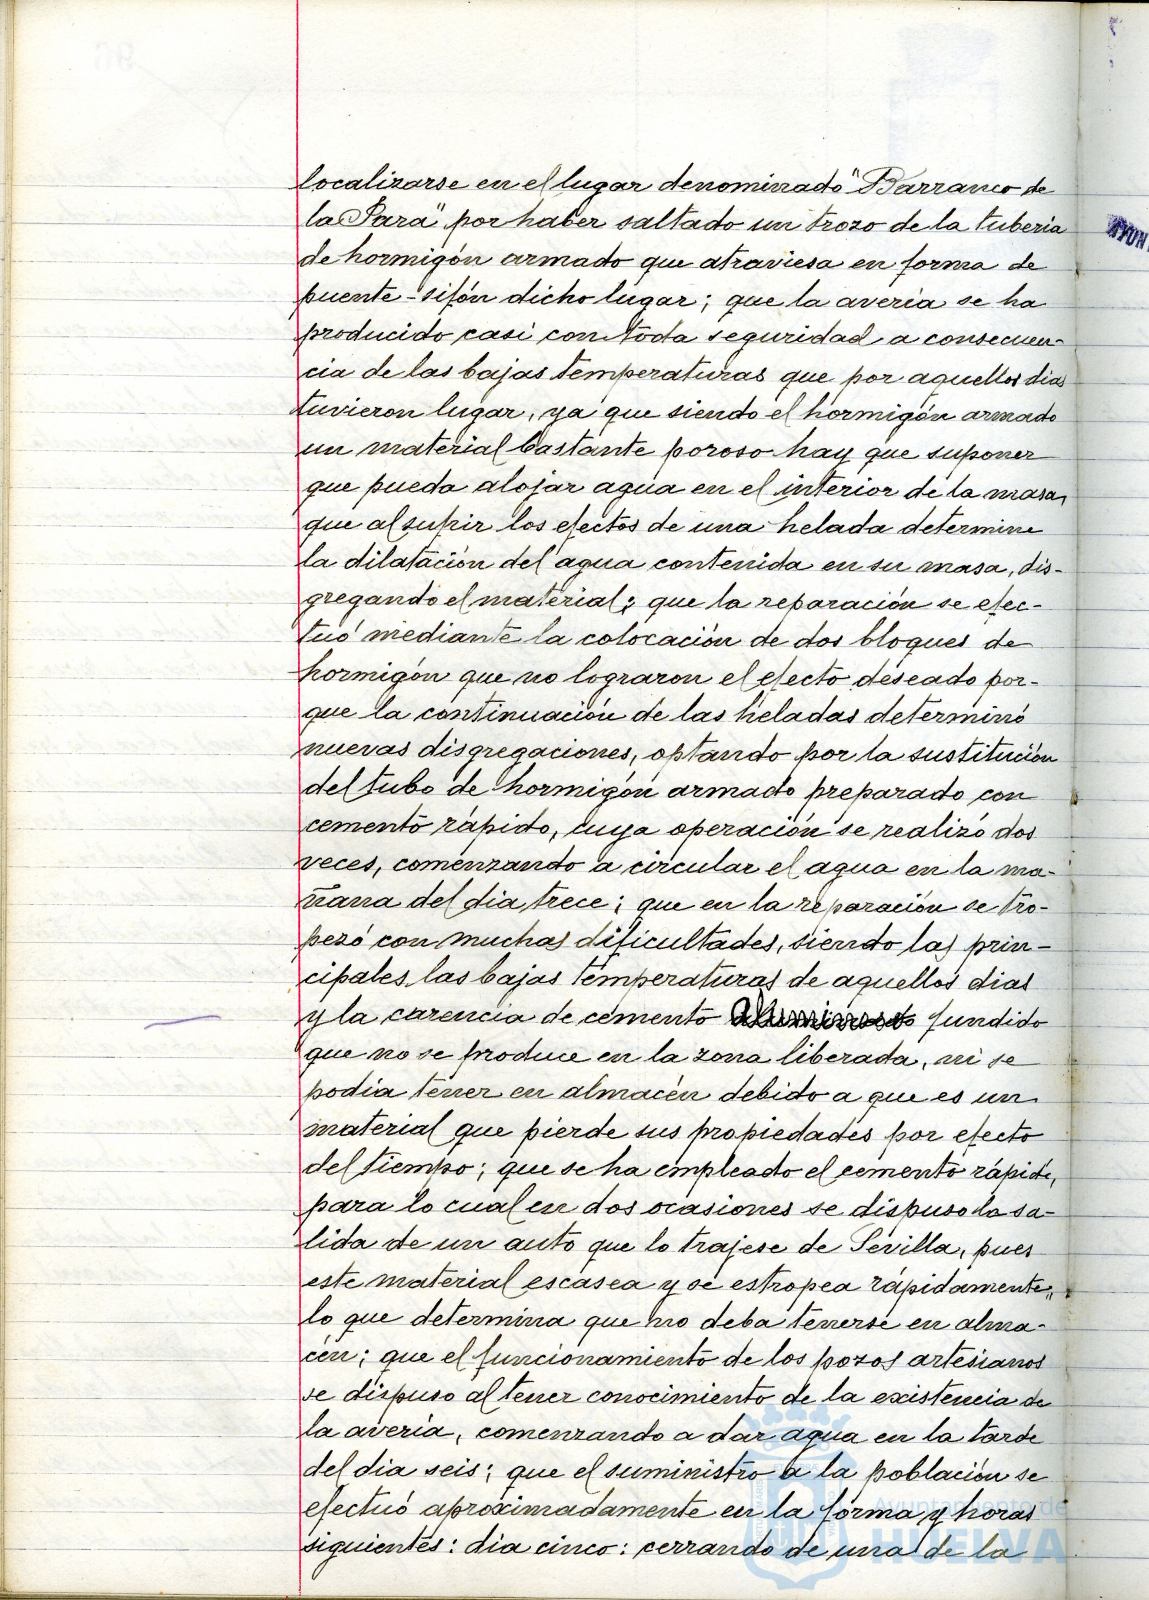 localizarse en el lugar denominado "Barranco de
la Para" por haber saltado un trozo de la tuberia
de hormigón armado que atraviesa en forma de
puente-sifón dicho lugar; que la averia se ha
producido casi con toda seguridad a consecuen-
cia de las bajas temperaturas que por aquellos dias
tuvieron lugar, ya que siendo el hormigón armado
un material bastante poroso hay que suponer
que pueda alojar agua en el interior de la masa,
que al sufrir los efectos de una helada determine
la dilatación del agua contenida en su masa, dis-
gregando el material; que la reparación se efec-
tuó mediante la colocación de dos bloques de
hormigón que no lograron el efecto deseado por-
que la continuación de las heladas determinó
nuevas disgregaciones, optando por la sustitución
del tubo de hormigón armado preparado con
cemento rápido, cuya operación se realizó dos
veces, comenzando a circular el agua en la ma-
ñana del dia trece; que en la reparación se tro-
pezó con muchas dificultades, siendo las prin-
cipales las bajas temperaturas de aquellos dias
y la carencia de cemento fundido
que no se produce en la zona liberada, ni se
podia tener en almacén debido a que es un
material que pierde sus propiedades por efecto
del tiempo; que se ha empleado el cemento rápido,
para lo cual en dos ocasiones se dispuso la sa-
lida de un auto que lo trajese de Sevilla, pues
este material escasea y se estropea rápidamente,
lo que determina que no deba tenerse en alma-
cén; que el funcionamiento de los pozos artesianos
se dispuso al tener conocimiento de la existencia de
la averia, comenzando a dar agua en la tarde
del dia seis; que el suministro a la población se
efectuó aproximadamente en la forma y horas
siguientes: dia cinco: cerrando de una de la
Ayuntamiento de
HUELVA